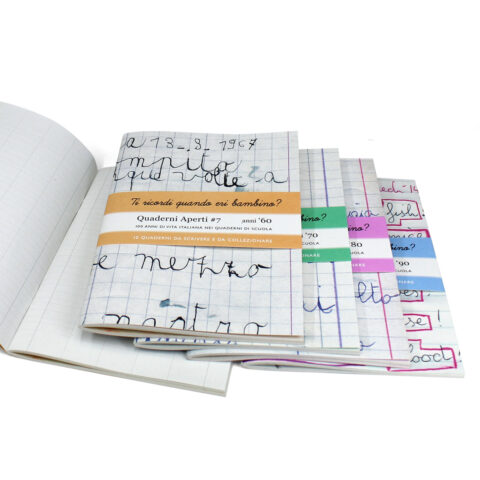 a 13-3-1967
mpito
que volte za
a
Ti ricordi quando eri bambino?
Quaderni Aperti #7 anni '60
100 ANNI DI VITA ITALIANA NEI QUADERNI DI SCUOLA
10 QUADERNI DA SCRIVERE E DA COLLEZIONARE
e mezzo
mbino?
'70
SCUOLA
ZIONARE
mbino?
'80
SCUOLA
ZIONARE
alto
fish!
bino?
'90
SCUOLA
NARE
es!
se!
lood!